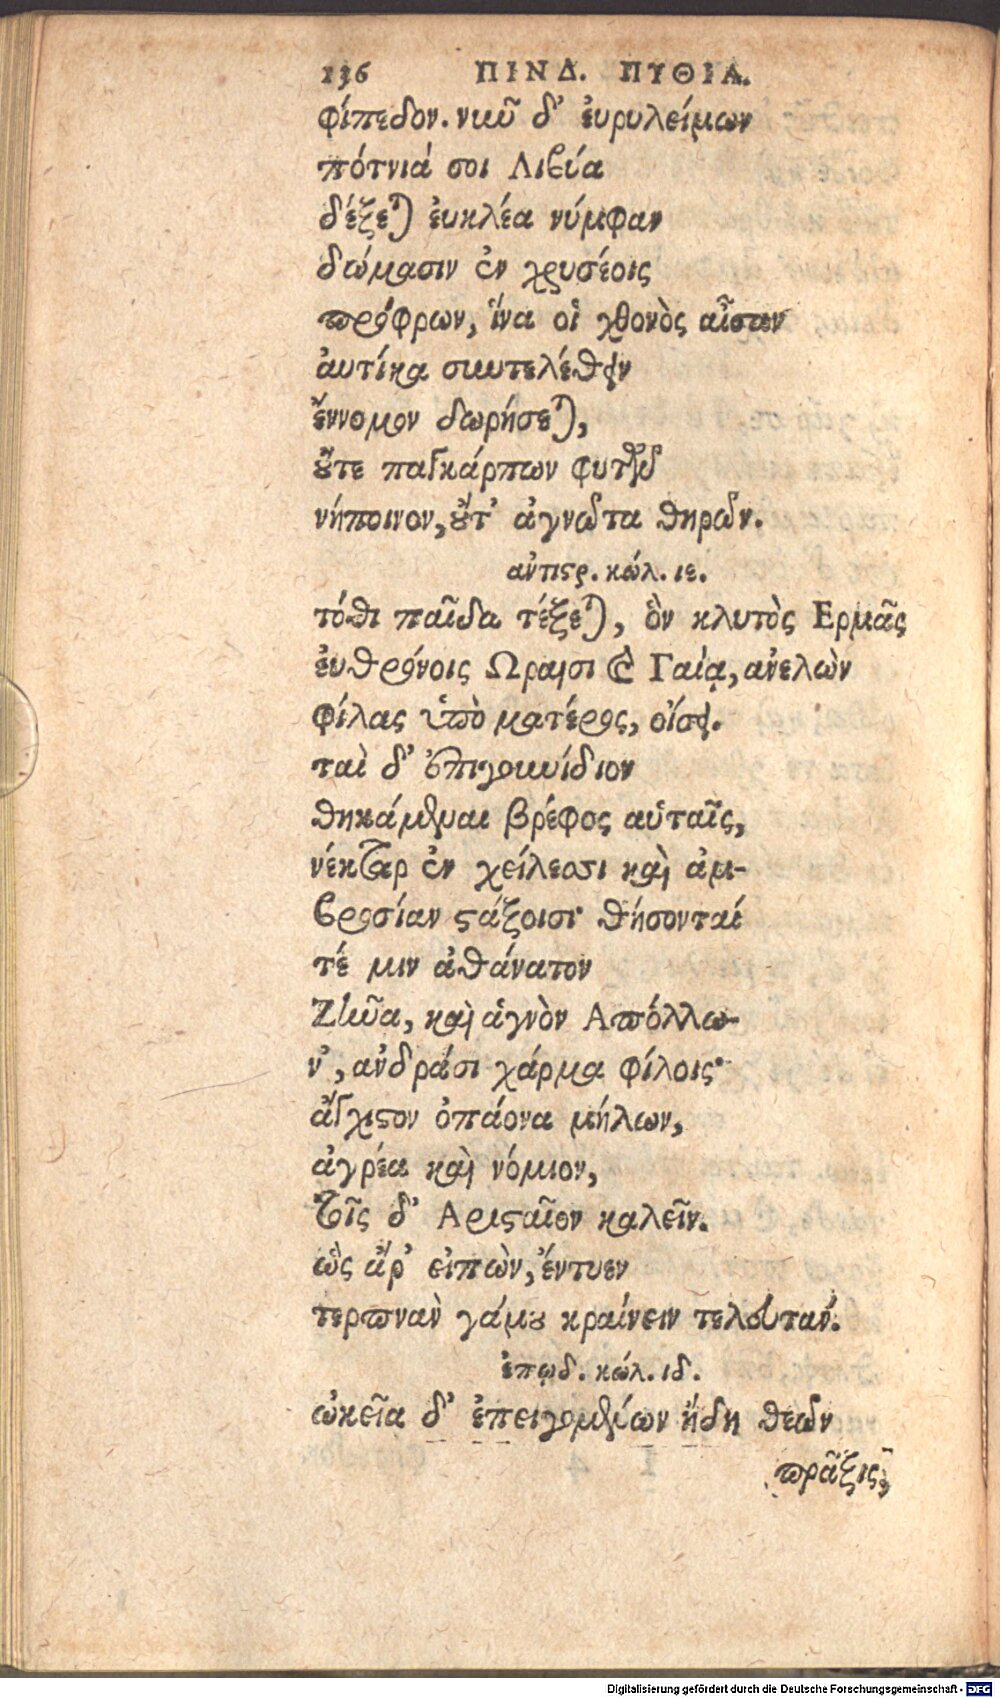 136 ΠΙΝΔ. ΠΥΘΙΑ.
φίπεδον. νῦν δ' ἐυρυλείμων
πότνιά σοι Λιβύα
δέξεται ἐυκλέα νύμφαν
δώμασιν ἐν χρυσέοις
πρόφρων, ἵνα οἱ χθονὸς αἶσαν
ἀυτίκα συντελέθειν
ἔννομον δωρήσεται,
οὔτε παγκάρπων φυτῶν
νήποινον, οὔτ' ἀγνῶτα θηρῶν.
αντιστρ. κώλ. ιε.
τόθι παῖδα τέξεται, ὃν κλυτὸς Ερμᾶς
ἐυθρόνοις Ωραισι καὶ Γαίᾳ, ἀνελὼν
φίλας ὑπὸ ματέρος, οἴσει.
ταὶ δ' ἐπιγουνίδιον
θηκάμεναι βρέφος αὑταῖς,
νέκταρ ἐν χείλεσσι καὶ ἀμ-
βροσίαν στάξοισι· θήσονταί
τέ μιν ἀθάνατον
Ζῆνα, καὶ ἁγνὸν Απόλλω-
ν', ἀνδράσι χάρμα φίλοις·
ἄγχιστον ὀπάονα μήλων,
ἀγρέα καὶ νόμιον,
τοῖς δ' Αρισταῖον καλεῖν.
ὣς ἄρ' εἰπὼν, ἔντυεν
τερπνὰν γάμου κραίνειν τελευτάν.
ἐπῳδ. κώλ. ιδ.
ὠκεῖα δ' ἐπειγομένων ἤδη θεῶν
πρᾶξις,
Digitalisierung gefördert durch die Deutsche Forschungsgemeinschaft - DFG